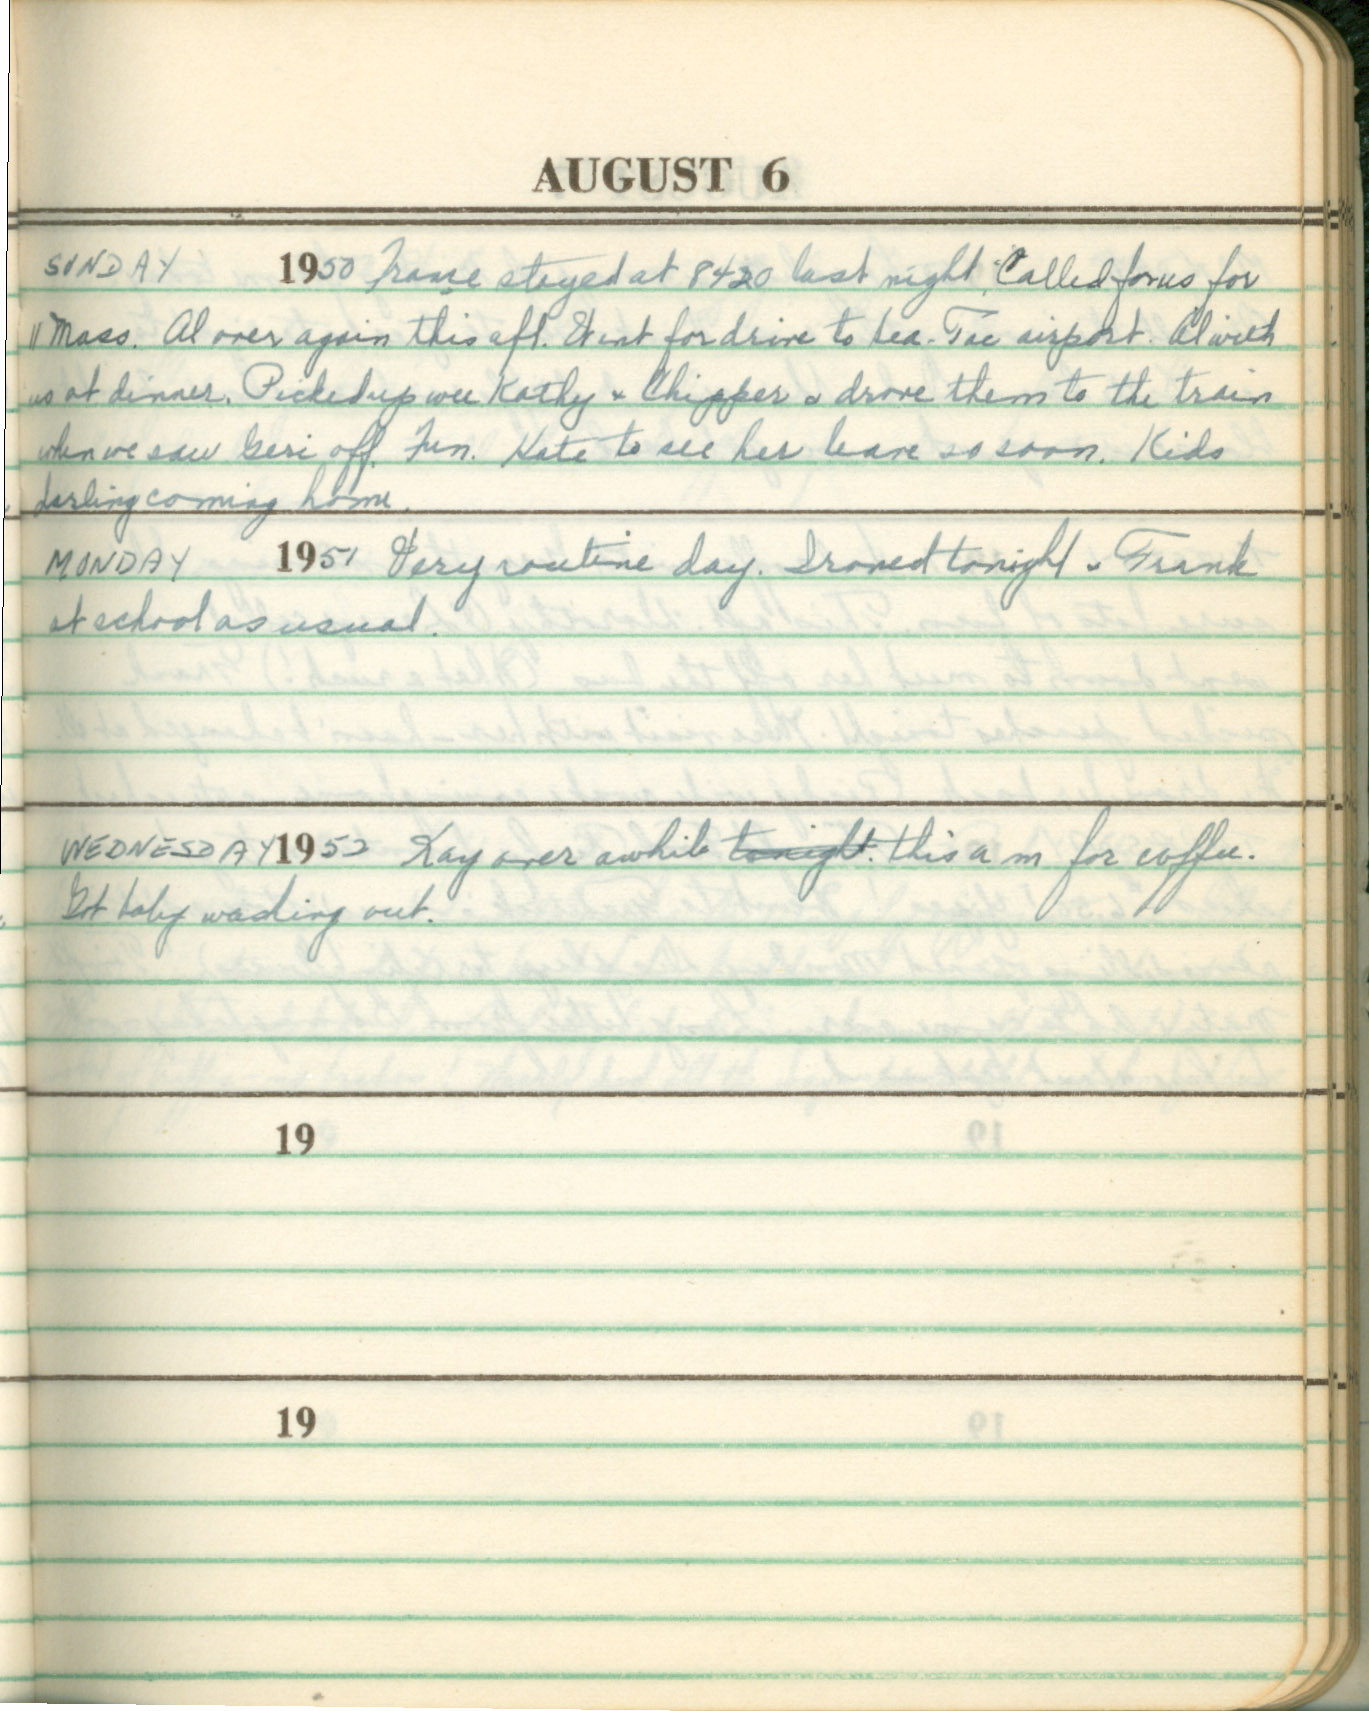 AUGUST 6
SUNDAY 1950 stayed at 8420 last night. Called for us for
11 Mass. Al over again this aft. Went for drive to Sea-Tac airport. Al with
us at dinner. Picked up wee Kathy & Chipper & drove them to the train
when we saw Geri off. Fun. Hate to see her leave so soon. Kids
darling coming home.
MONDAY 1951 Very routine day. Ironed tonight & Frank
at school as usual.
WEDNESDAY 1952 Kay over awhile tonight. this a m for coffee.
Got baby washing out.
19
19